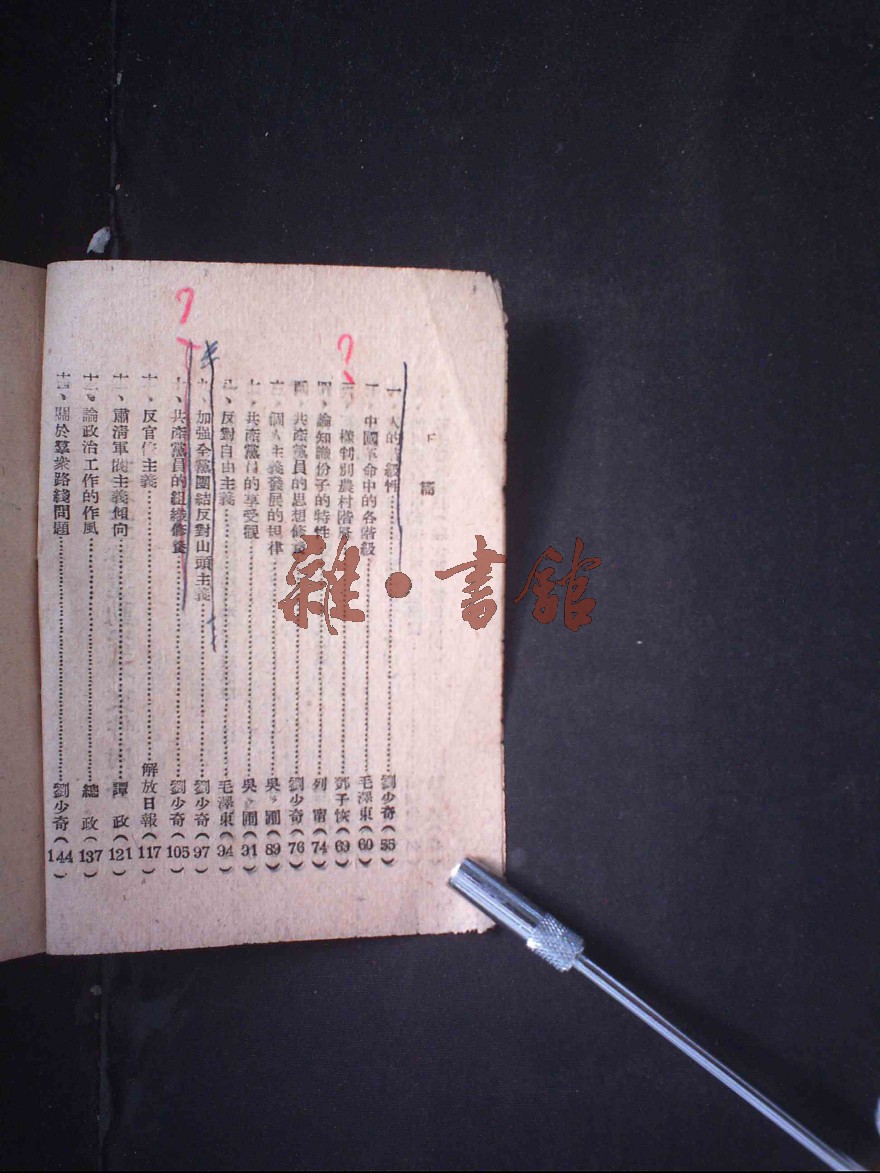 下篇
一、人的階級性 劉少奇（55）
二、中國革命中的各階級 毛澤東（60）
三、樣制別農村階層 鄧子恢（69）
四、論知識份子的特性 列甯（74）
五、共產黨員的思想修養 劉少奇（76）
六、個人主義發展的規律 吳圃（89）
七、共產黨員的享受觀 吳圃（91）
八、反對自由主義 毛澤東（94）
九、加强全黨團結反對山頭主義 劉少奇（97）
十、共產黨員的組織修養 劉少奇（105）
十一、反官僚主義 解放日報（117）
十二、肅清軍閥主義傾向 譚政（121）
十三、論政治工作的作風 總政（137）
十四、關於羣衆路綫問題 劉少奇（144）
雜·書館